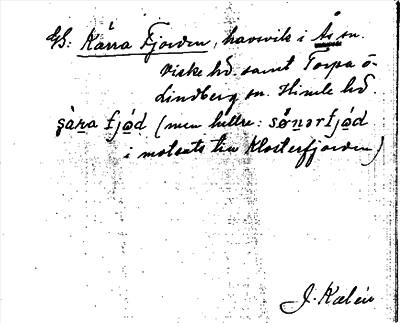 GS: Kärra Fjorden, havsvik i Ås sn.
Viske hd. samt Torpa o
Lindberg sn. Himle hd.
şàra fjo̱d (men hellre: sø̱nərfjo̱d
i motsats till Klosterfjorden)
J. Kalén